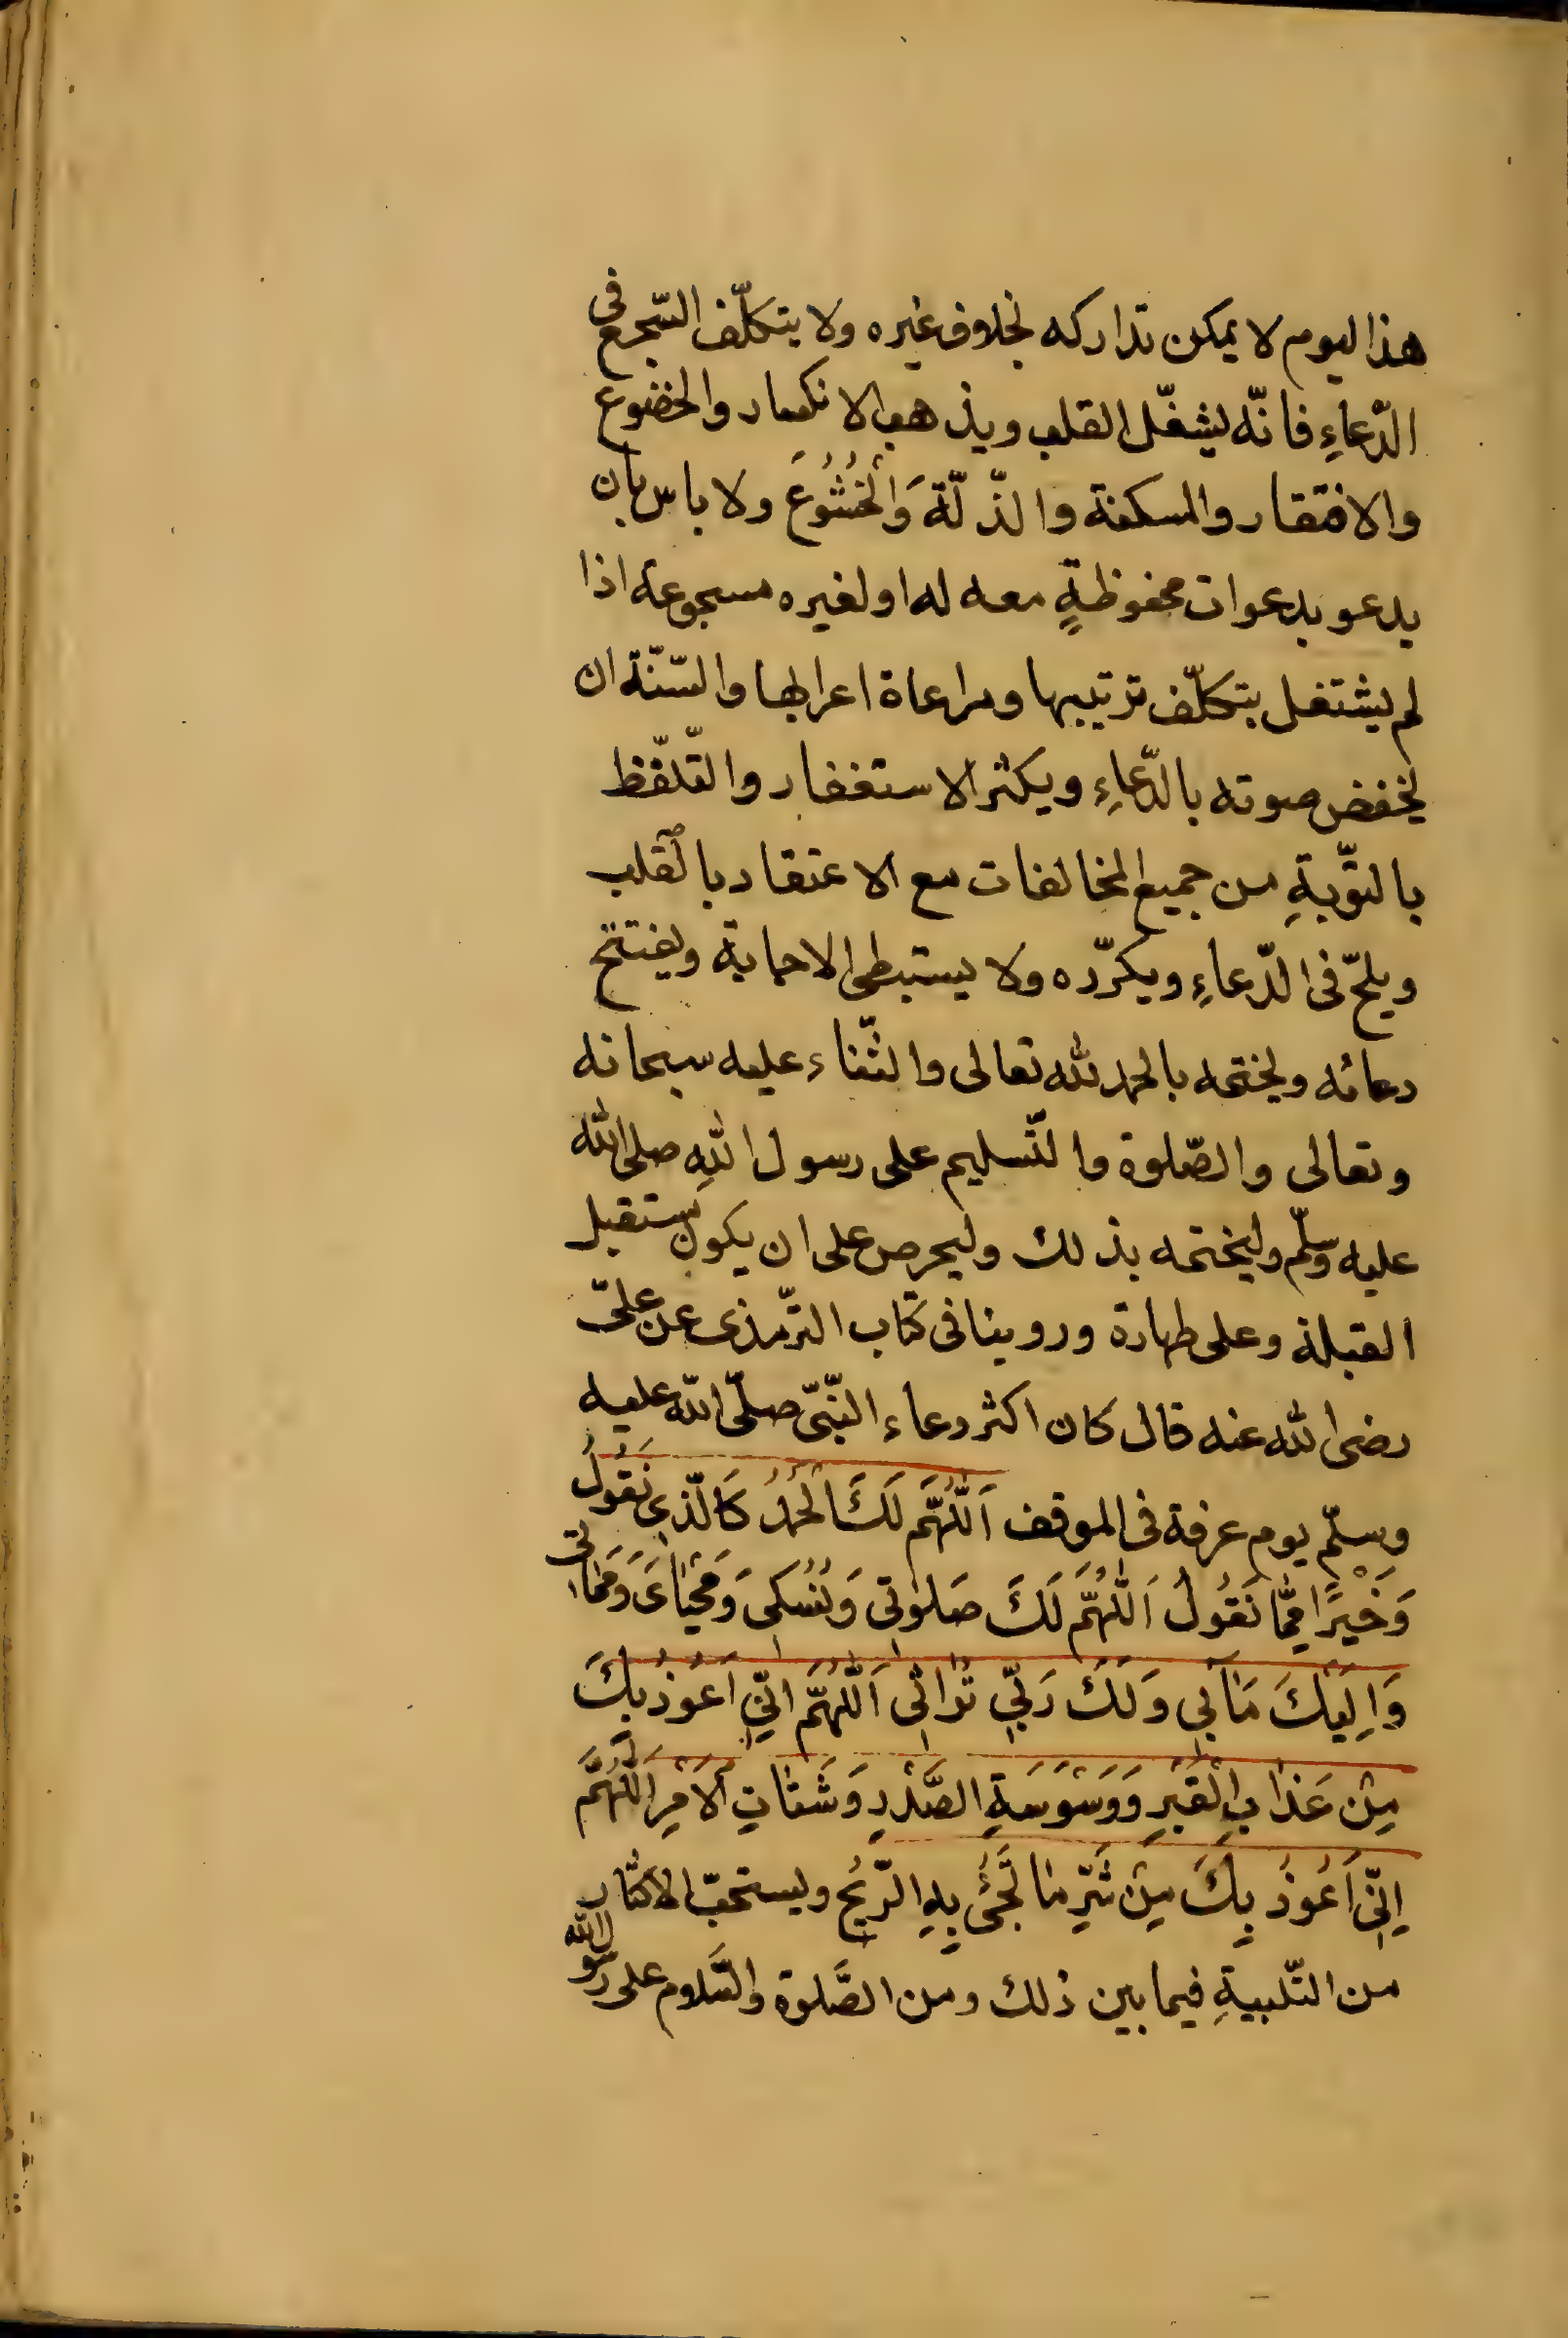 هذا اليوم لا يمكن تداركه بخلاف غيره ولا يتكلّف السّجع فى
الدّعاءِ فانّه يشغّل القلب ويذهب الانكسار والخضوع
والافتقار والمسكنة والذّلّة وَالْخُشُوعَ ولا باس بان
يدعو بدعوات محفوظةٍ معه له او لغيره مسجوعة اذا
لم يشتغل بتكلّف ترتيبها ومراعاة اعرابها والسّنّة ان
يخفض صوته بالدّعاءِ ويكثر الاستغفار والتّلفّظ
بالتّوبةِ من جميع المخالفات مع الاعتقاد بالقلب
ويلحّ فى الدّعاءِ ويكرّره ولا يستبطى الاجابة ويفتتح
دعائه ويختمه بالحمد لله تعالى والثّناء عليه سبحانه
وتعالى والصّلوة والتّسليم على رسول اللهِ صلى الله
عليه وسلّم وليختمه بذلك وليحرص على ان يكون مستقبل
القبلة وعلى طهارة وروينا فى كتاب التّرمذى عن علىّ
رضى الله عنه قال كان اكثر دعاء النّبىّ صلّى الله عليه
وسلّم يوم عرفة فى الموقف اَللّٰهُمَّ لَكَ الْحَمْدُ كَالَّذِى نَقُولُ
وَخَيْرًا مِمَّا نَقُولُ اَللّٰهُمَّ لَكَ صَلٰوتِى وَنُسُكِى وَمَحْيَاىَ وَمَمَاتِى
وَاِلَيْكَ مَآبِى وَلَكَ رَبِّى تُرَاثِى اَللّٰهُمَّ اِنِّى اَعُوذُ بِكَ
مِنْ عَذَابِ الْقَبْرِ وَوَسْوَسَةِ الصَّدْرِ وَشَتَاتِ الْاَمْرِ اَللّٰهُمَّ
اِنِّى اَعُوذُ بِكَ مِنْ شَرِّ مَا تَجِىُٔ بِهِ الرِّيحُ ويستحبّ الاكثار
من التّلبيةِ فيما بين ذلك ومن الصَّلوة والسَّلام على رسول الله